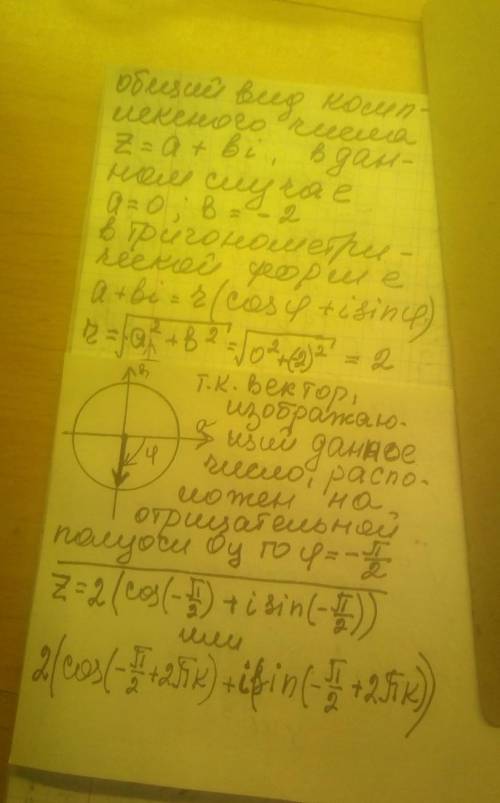 общий вид комп-
лексного числа
z = a + bi, в дан-
ном случае
a = 0; b = -2
в тригонометри-
ческой форме
a + bi = r(cos φ + i sin φ)
r = √(a² + b²) = √(0² + (-2)²) = 2
т.к. вектор,
изображаю-
щий данное
число, распо-
ложен на
отрицательной
полуоси Оy то φ = -π/2
z = 2(cos(-π/2) + i sin(-π/2))
или
2(cos(-π/2 + 2πk) + i(sin(-π/2 + 2πk))
в
a
φ